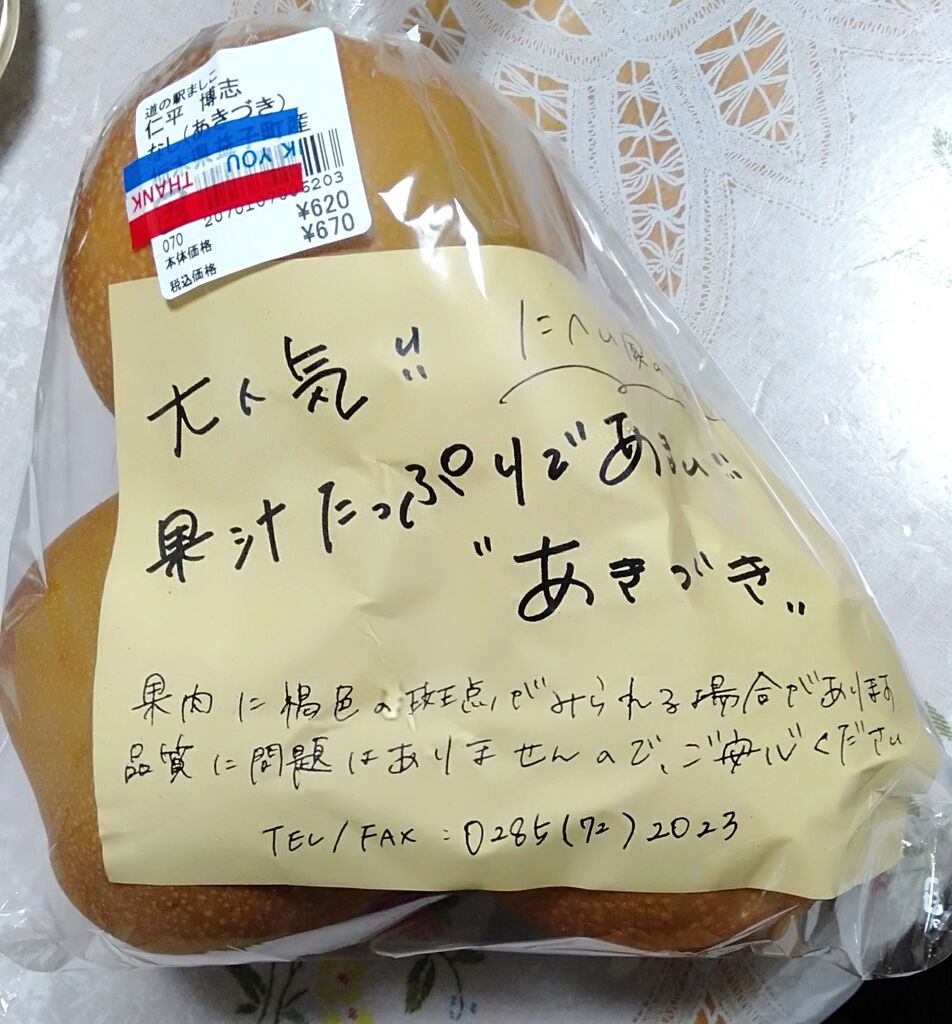 道の駅ましこ
仁平 博志
なし(あきづき)
THANK YOU
¥620
¥670
070
本体価格
税込価格
大人気!!
果汁たっぷりであまい!!
"あきづき"
果肉に褐色の斑点がみられる場合があります
品質に問題はありませんので、ご安心ください
TEL/FAX:0285(72)2023